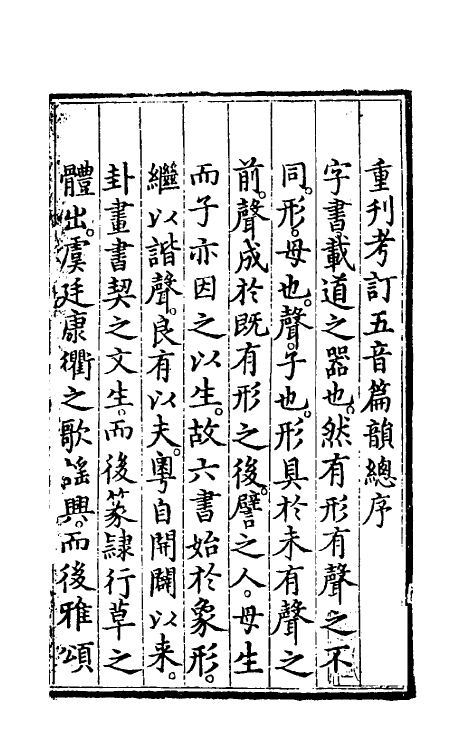 重刊考訂五音篇韻總序
字書。載道之器也。然有形有聲之不
同。形。母也。聲。子也。形具於未有聲之
前。聲成於既有形之後。譬之人。母生
而子亦因之以生。故六書始於象形。
繼以諧聲。良有以夫。粵自開闢以来。
卦畫書契之文生。而後篆隷行草之
體出。虞廷康衢之歌謡興。而後雅頌